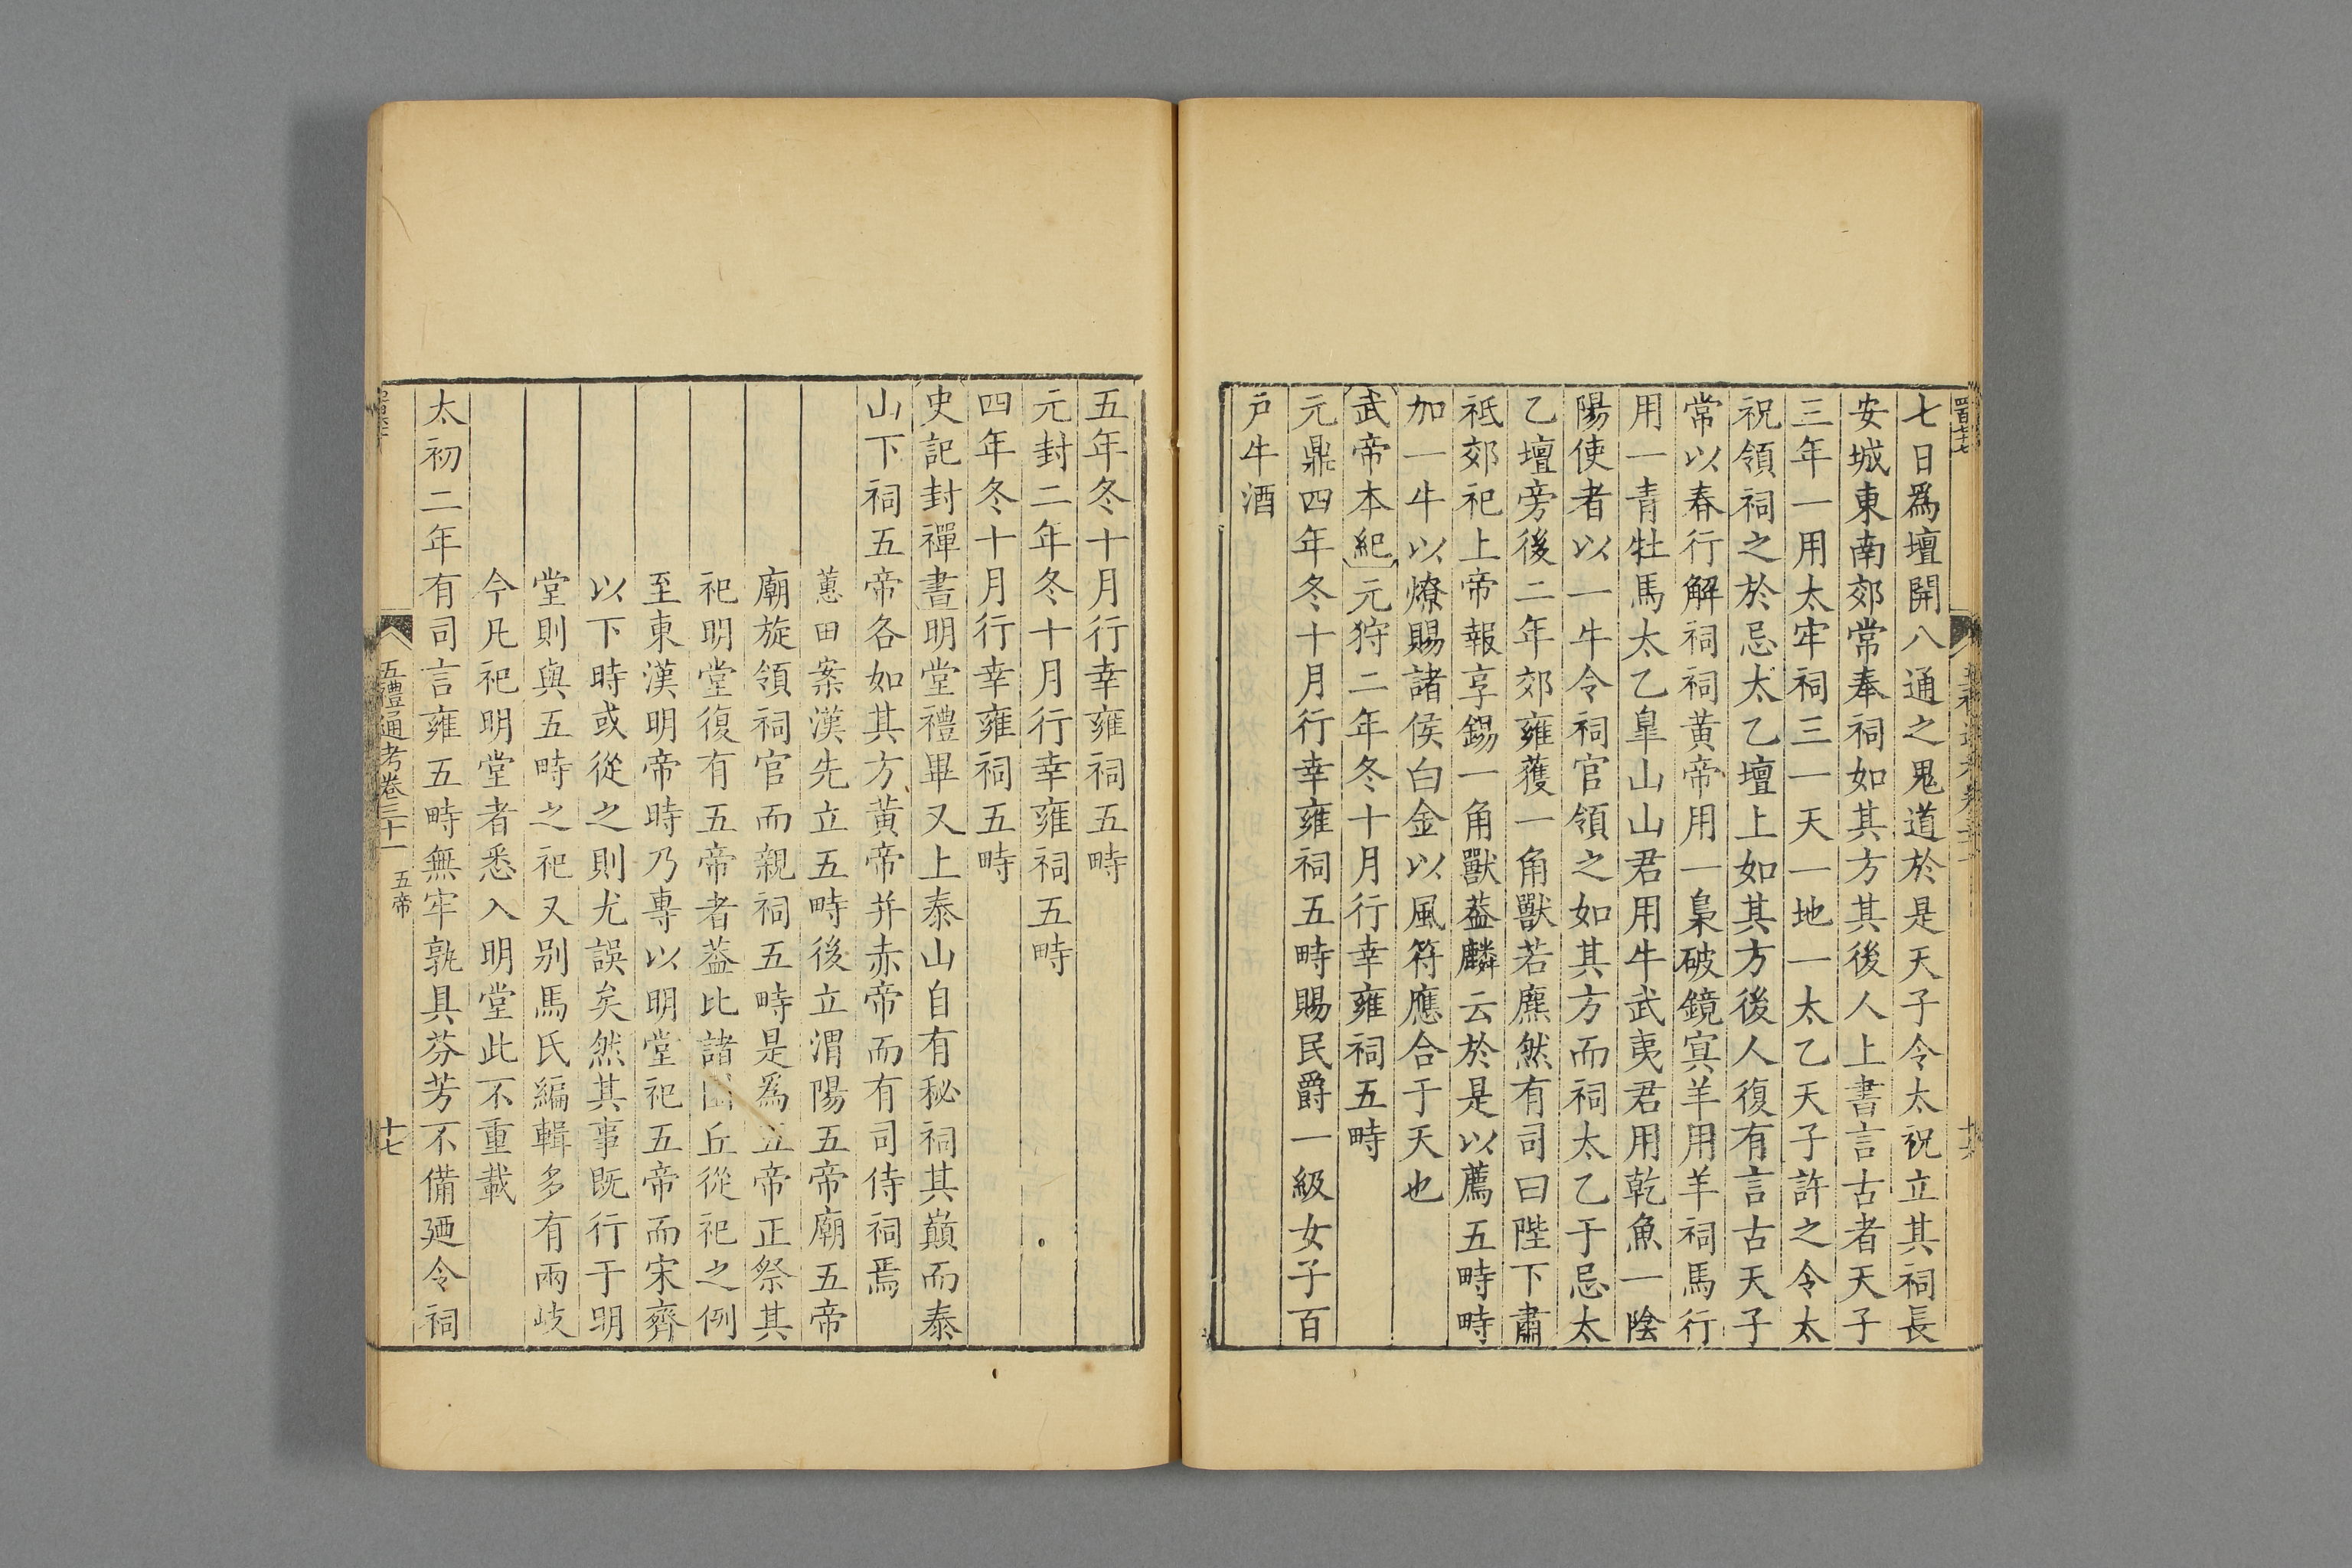 七日爲壇開八通之鬼道於是天子令太祝立其祠長
安城東南郊常奉祠如其方其後人上書言古者天子
三年一用太牢祠三一天一地一太乙天子許之令太
祝領祠之於忌太乙壇上如其方後人復有言古天子
常以春行解祠祠黃帝用一梟破鏡冥羊用羊祠馬行
用一青牡馬太乙皐山山君用牛武夷君用乾魚一陰
陽使者以一牛令祠官領之如其方而祠太乙于忌太
乙壇旁後二年郊雍獲一角獸若麃然有司曰陛下肅
祗郊祀上帝報享錫一角獸葢麟云於是以薦五畤畤
加一牛以燎賜諸侯白金以風符應合于天也
武帝本紀元狩二年冬十月行幸雍祠五畤
元鼎四年冬十月行幸雍祠五畤賜民爵一級女子百
戶牛酒
五年冬十月行幸雍祠五畤
元封二年冬十月行幸雍祠五畤
四年冬十月行幸雍祠五畤
史記封禪書明堂禮畢又上泰山自有秘祠其巔而泰
山下祠五帝各如其方黃帝并赤帝而有司侍祠焉
蕙田案漢先立五畤後立渭陽五帝廟五帝
廟旋領祠官而親祠五畤是爲五帝正祭其
祀明堂復有五帝者葢比諸圜丘從祀之例
至東漢明帝時乃專以明堂祀五帝而宋齊
以下時或從之則尤誤矣然其事既行于明
堂則與五畤之祀又别馬氏編輯多有兩歧
今凡祀明堂者悉入明堂此不重載
太初二年有司言雍五畤無牢孰具芬芳不備廼令祠
五禮通考卷三十一 五帝
十七